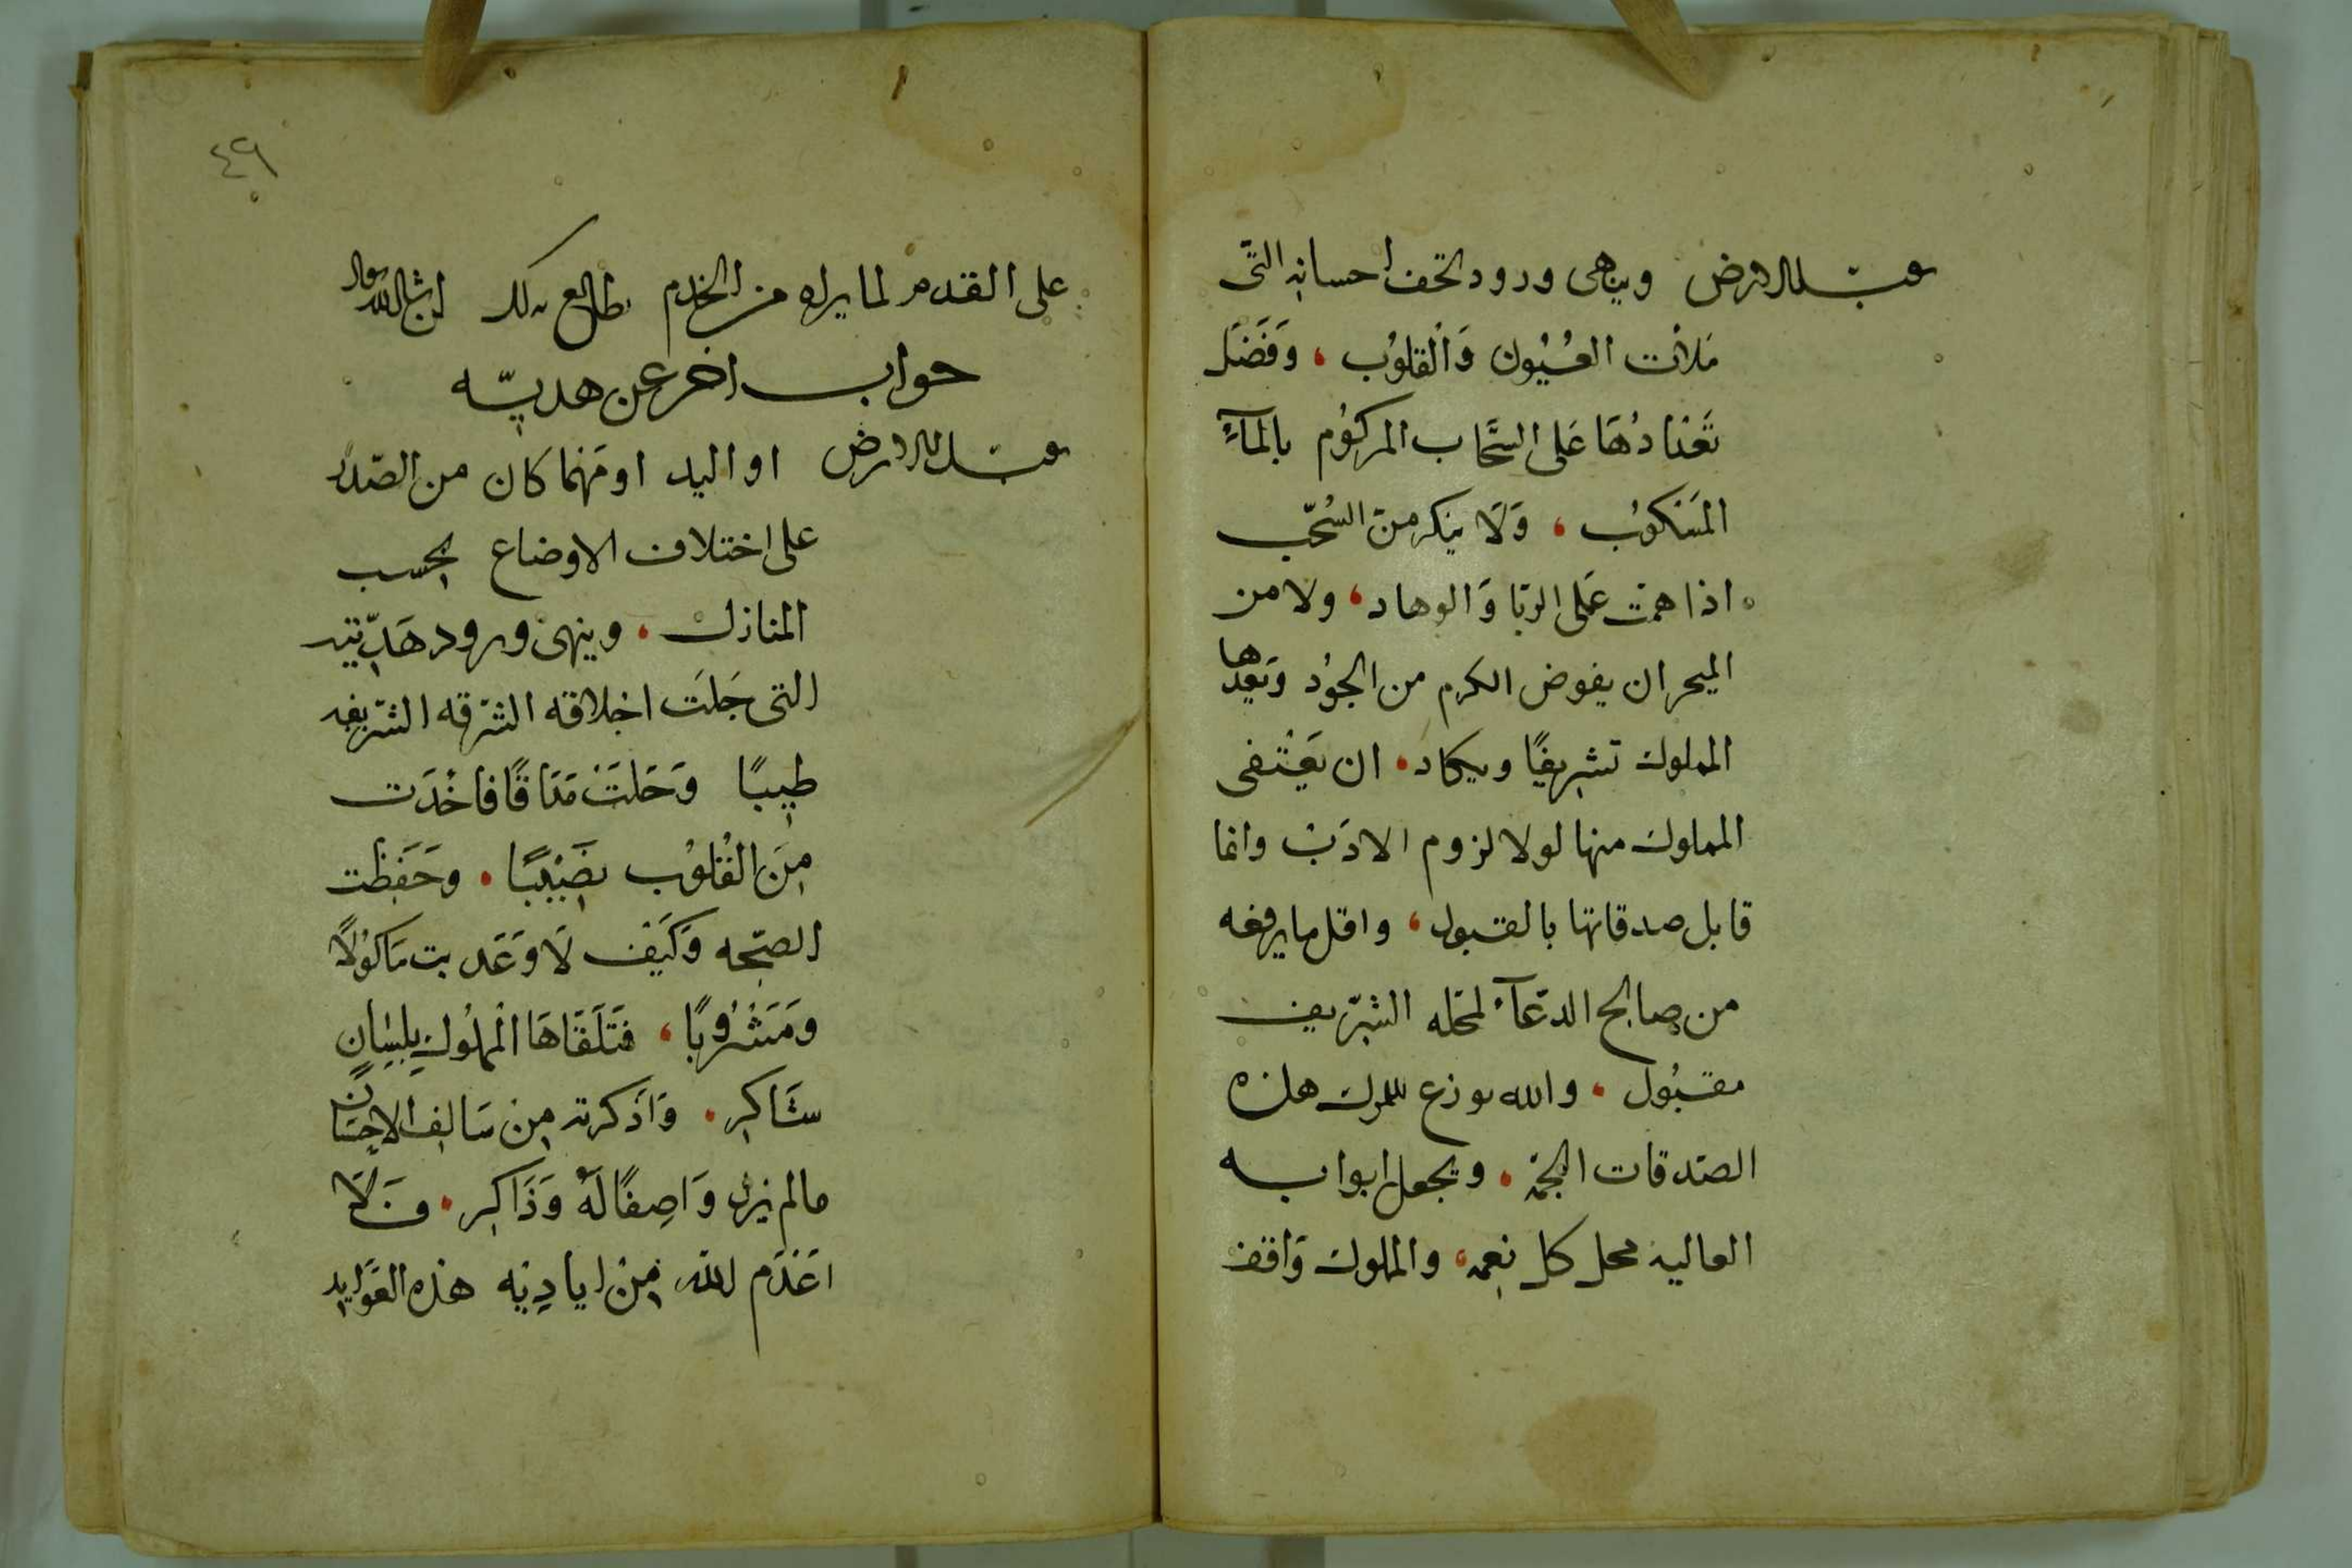 يقبل الارض وينهى ورود تحف احسانه التى
مَلأت العُيُون وَالْقلوُب ، وَفَضَل
تَعْتادُهَا عَلى السَّحَاب المركوُم بالمآءِ
المَسْكوُب ، وَلَا ينكر منَ السُحّب
اذا همت عَلى الرّبا وَالوهاد ، ولا من
البحر ان يفوض الكرم من الجوُد وَيَعِدّها
المملوك تشريفًا ويكاد . ان يَعْتفى
المملوك منها لولا لزوم الادَبْ وانما
قابل صدقاتها بالقبول ، واقل ما يرفعه
من صالح الدّعآء لمحله الشرّيف
مقبُول . والله يوزع المملوك هذه
الصّدقات الجمّه . ويجعل ابوابه
العاليه محل كل نعمه ، والمملوك وَاقف
٤٩
على القدم لما يراه من الخدم يطالع بذلك ان شا الله تعالى
جواب اخر عن هديّه
يقبل الارض او اليد او مَهْما كان من الصّدر
على اختلاف الاوضاع بحسب
المنازل . وينهى ورود هَدِيّته
التى جَلَت اخلاقه الشريفه
طيبًا وَحَلَتْ مَذاقًا فاخَذَت
مِنَ القُلوُب نصَيْبًا . وحَفِظت
الصّحه وَكَيف لَا وَعَذبت مَاكوُلًا
وَمَشْرُوبًا ، فتَلَقَاهَا المملُوك بِلِسَانٍ
شَاكِر . وَاذكرته مِن سَالِف الاحِسَان
مالم يزل وَاصِفًا لَهُ وَذَاكِر . فَلَا
اعَدَم الله مِنْ ايادِيْه هذه العَوَايد